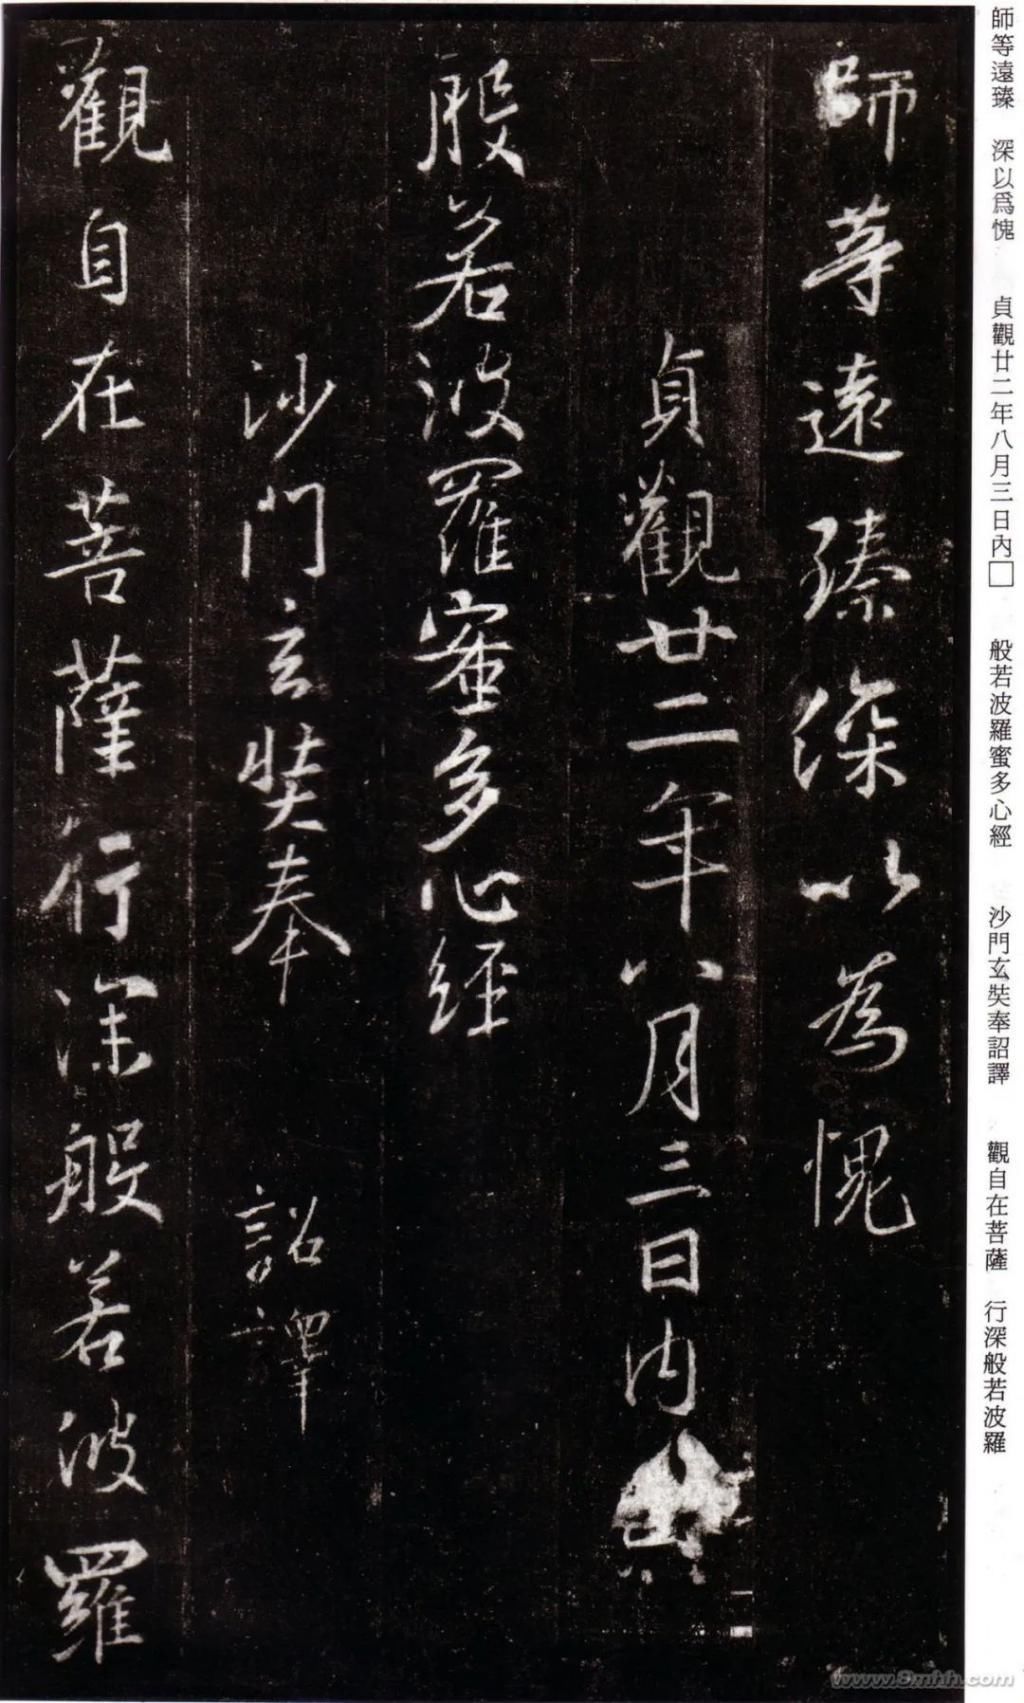 師等遠臻深以為愧
貞觀廿二年八月三日內
般若波羅蜜多心經
沙門玄奘奉 詔譯
觀自在菩薩行深般若波羅
師等遠臻 深以爲愧 貞觀廿二年八月三日內□ 般若波羅蜜多心經 沙門玄奘奉詔譯 觀自在菩薩 行深般若波羅